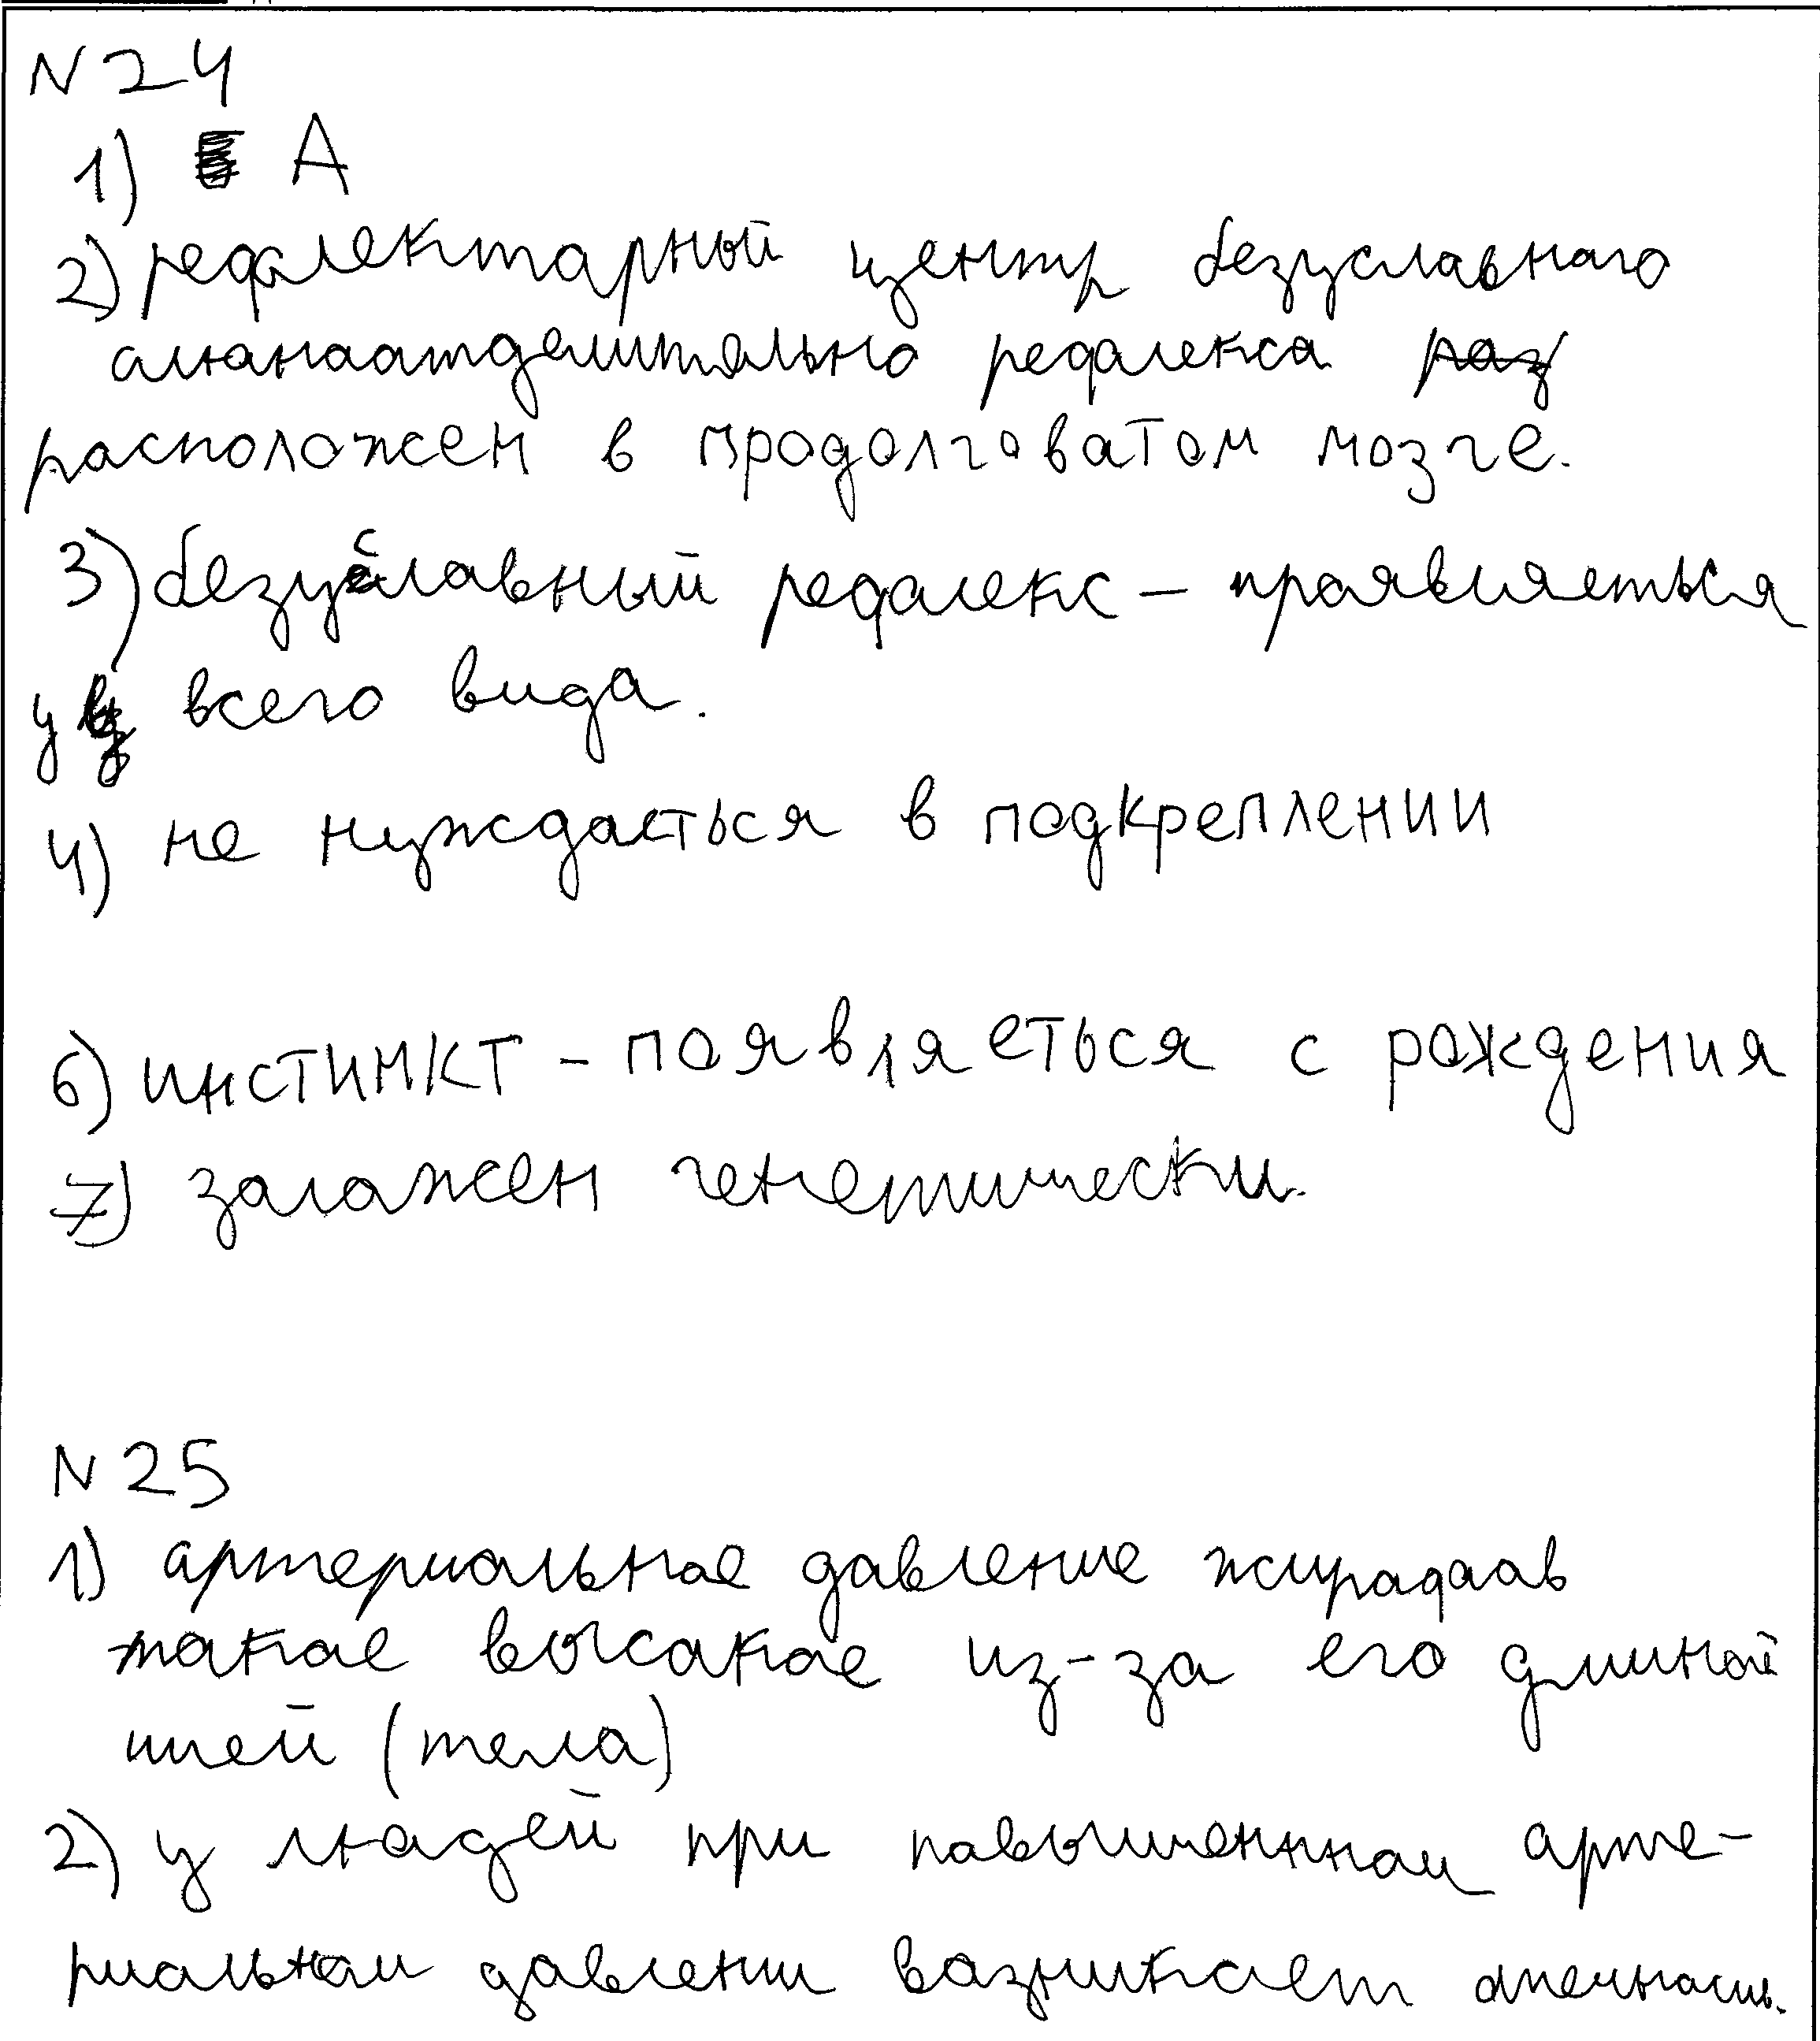 N 24
1) А
2) рефлекторный центр безусловного
слюноотделительно рефлекса раз
расположен в продолговатом мозге.
3) безусловный рефлекс – проявляеться
у всего вида.
4) не нуждаеться в подкреплении
6) инстинкт – появляеться с рождения
7) заложен генетически.
N 25
1) артериальное давление жирафов
такое высокое из-за его длиной
шеей (тела)
2) у людей при повышенном арте-
риальном давлении возникает